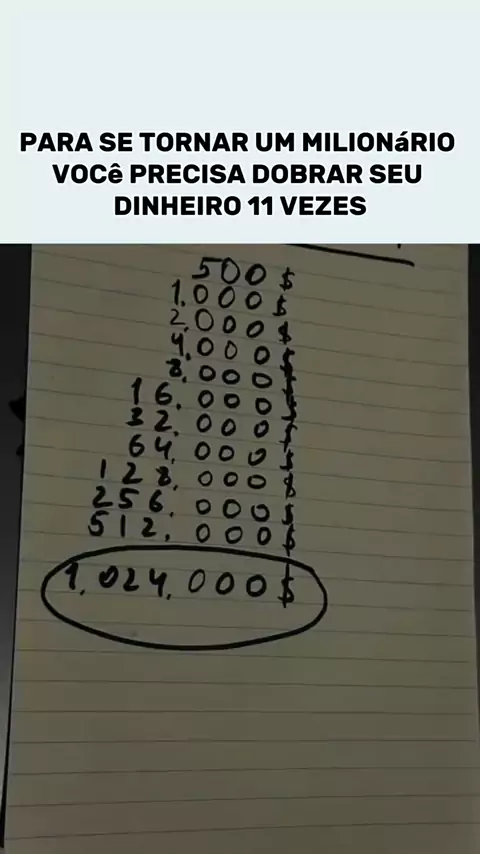 PARA SE TORNAR UM MILIONáRIO
VOCê PRECISA DOBRAR SEU
DINHEIRO 11 VEZES
500 $
1.000 $
2.000 $
4.000 $
8.000 $
16.000 $
32.000 $
64.000 $
128.000 $
256.000 $
512.000 $
1.024.000 $